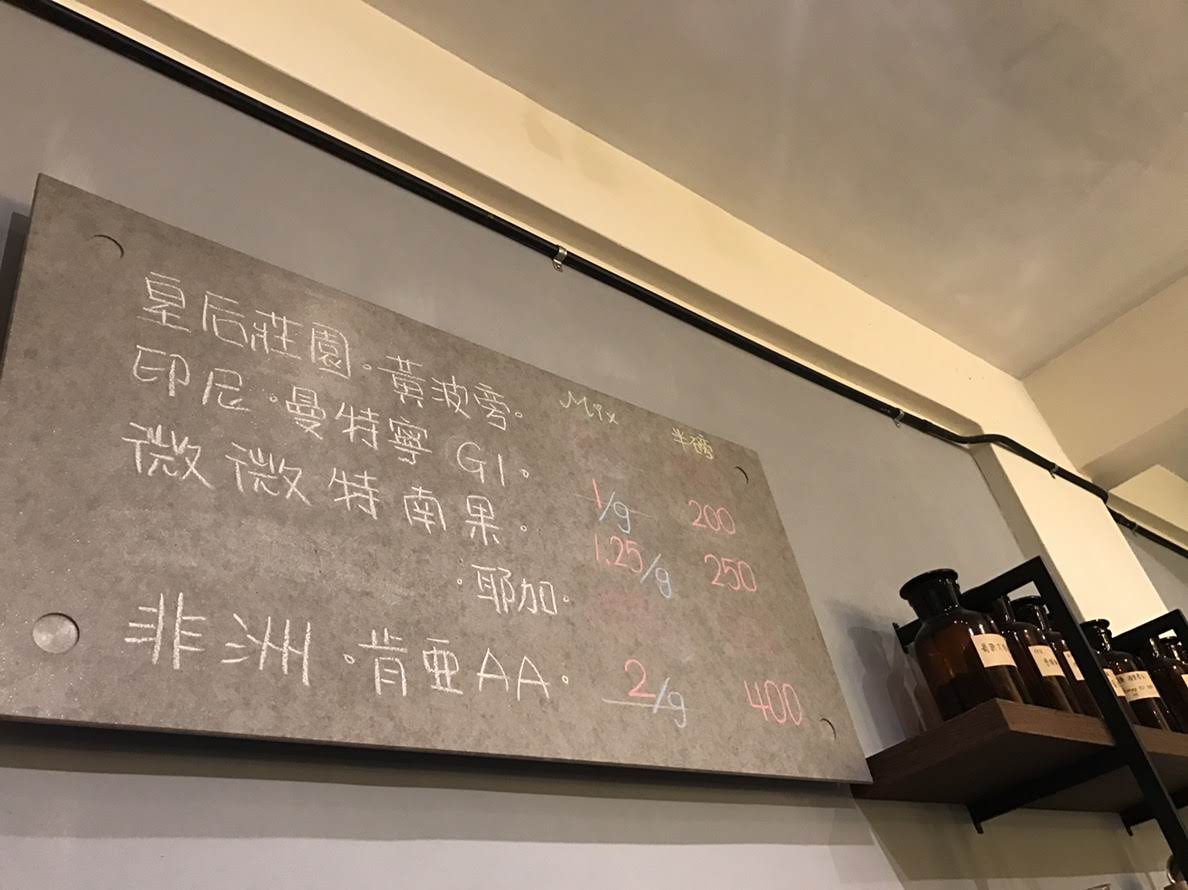 皇后莊園·黃波旁。 Mix 半磅
印尼·曼特寧 G1。 1/g 200
微微特南果。 1.25/g 250
·耶加·
非洲·肯亞AA· 2/g 400